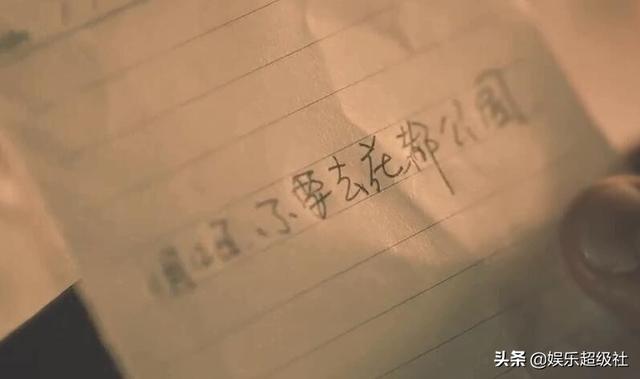 不要去花都公园
头条 @娱乐超级社